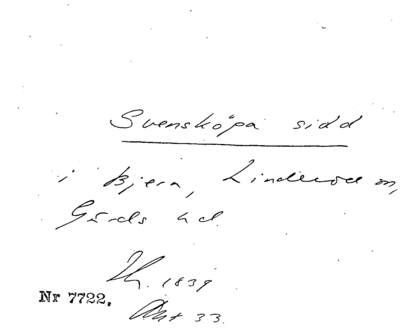 Svensköpa sidd
i Bjera, Linderöd m,
Gärds hd.
Th. 1839
Nr 7722.
Akt 33.